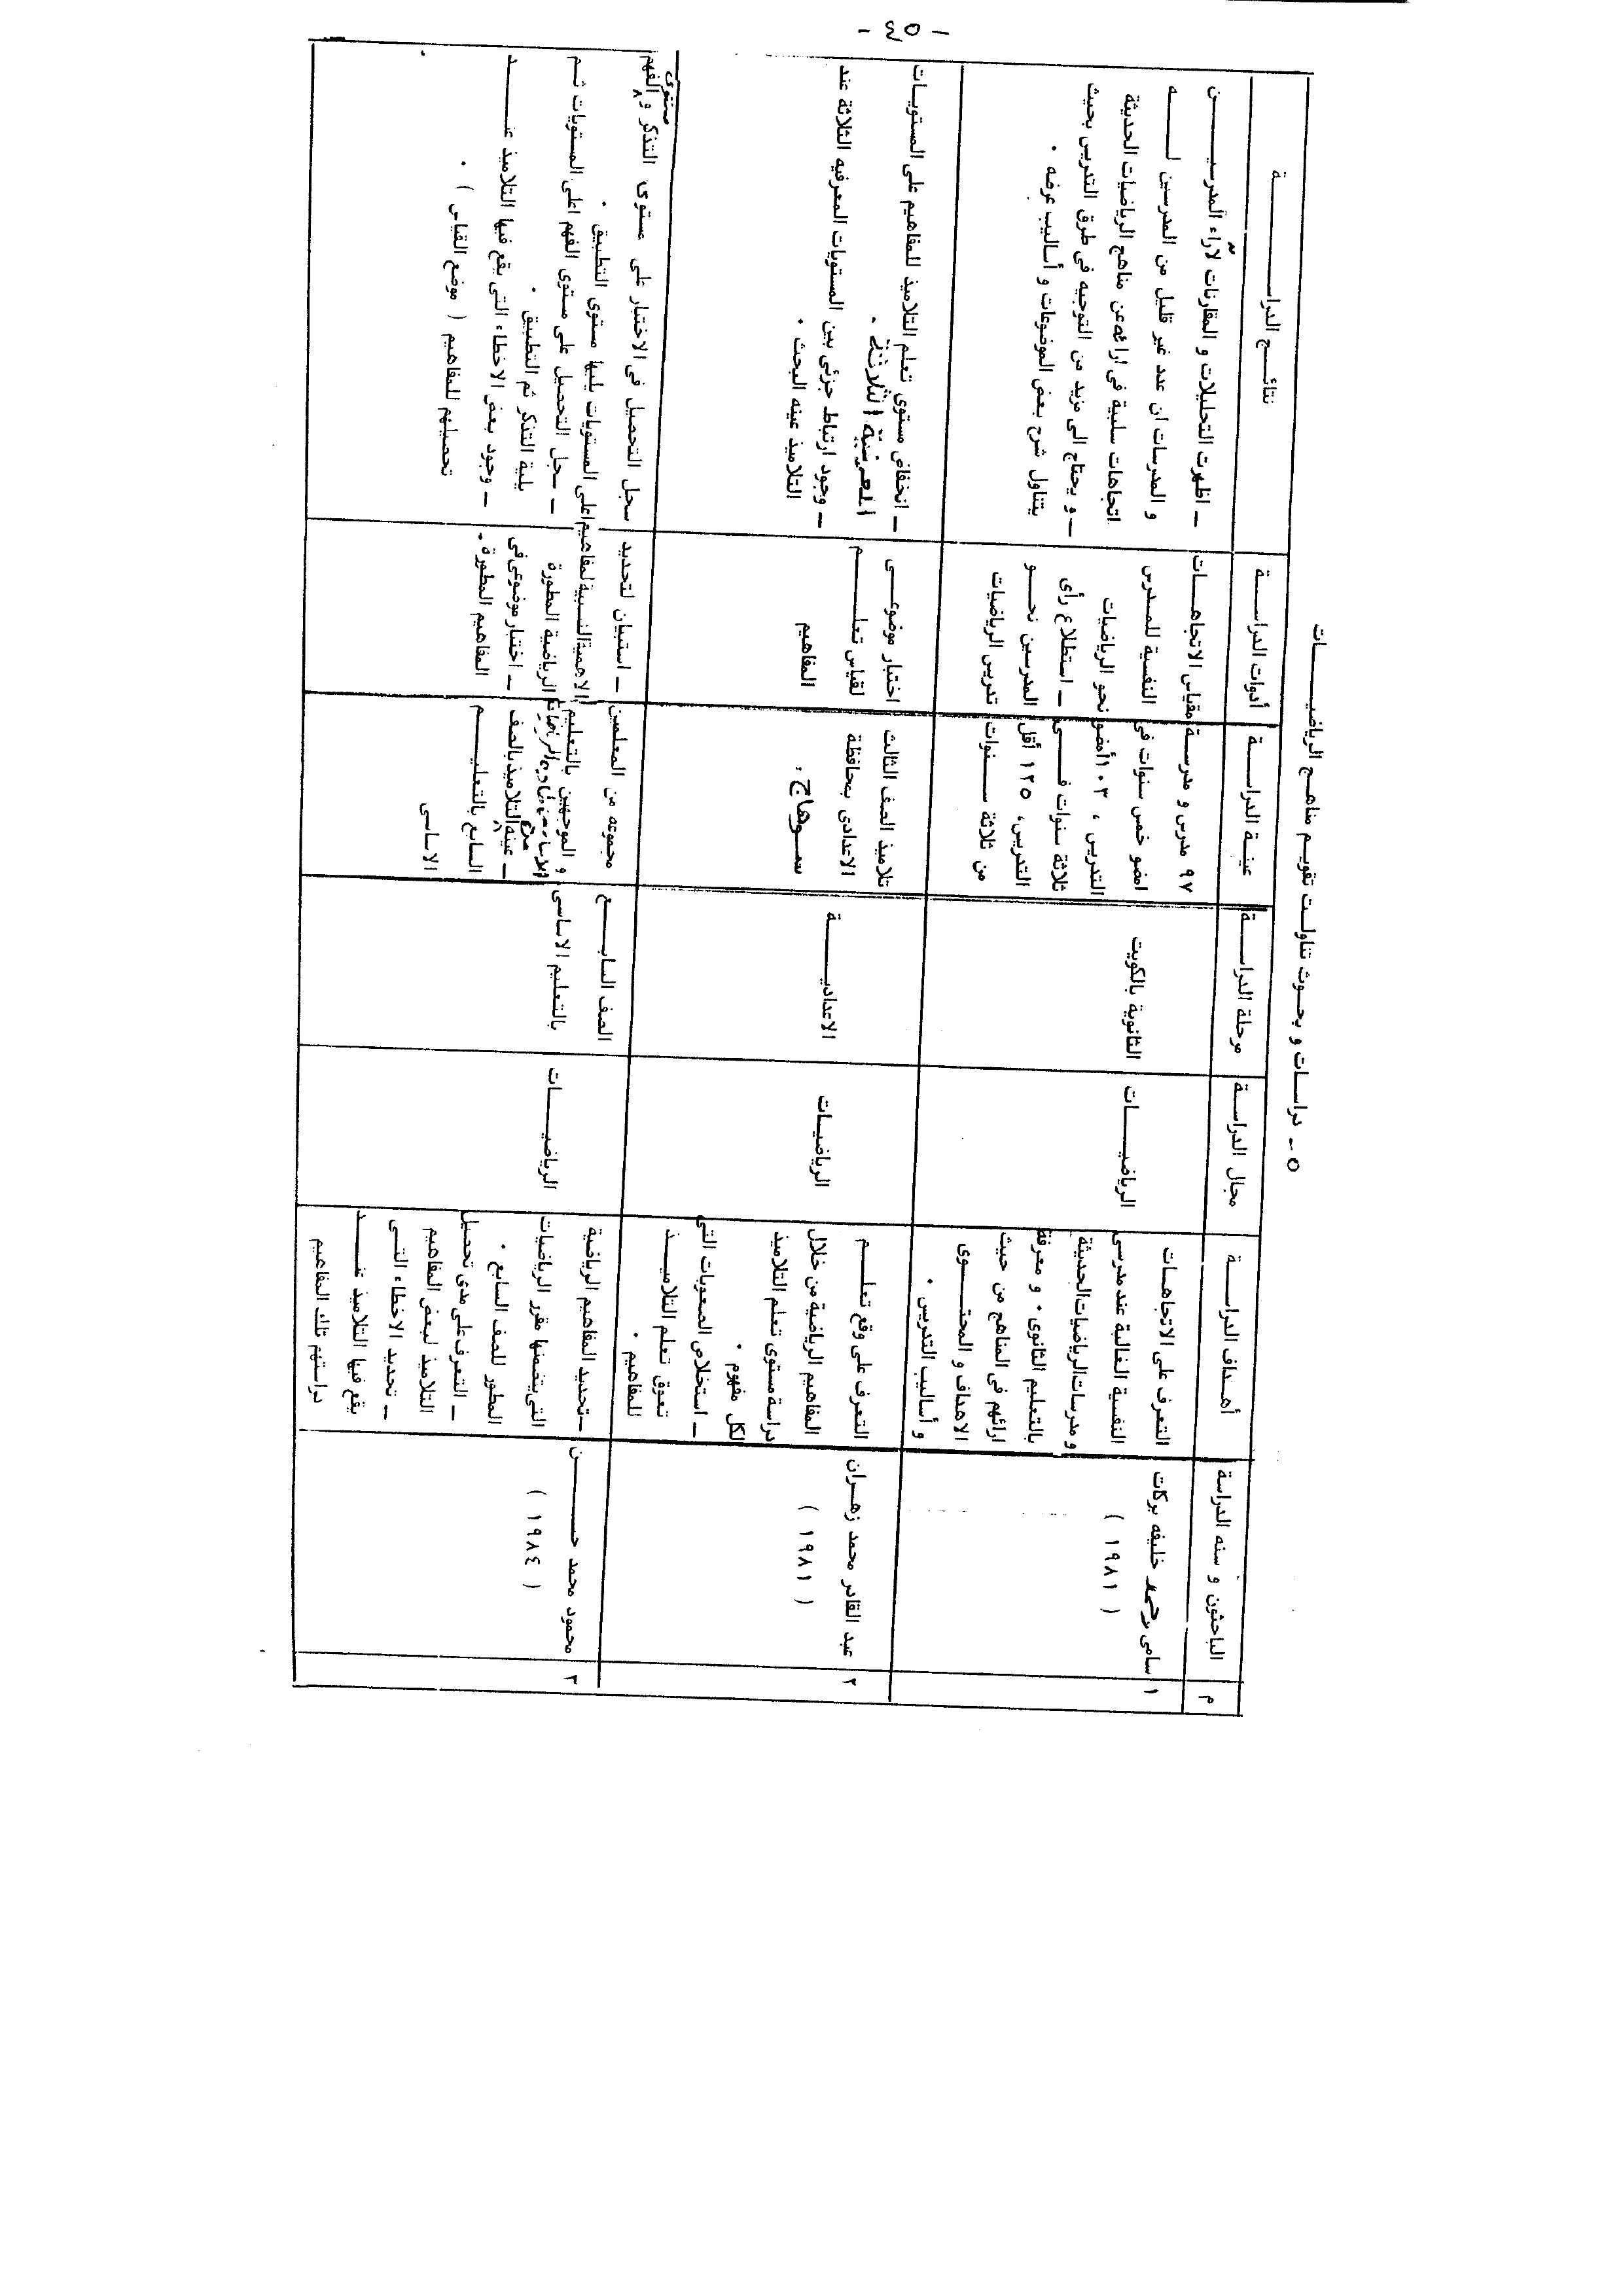 - ٤٥ -
٥ - دراسات و بحوث تناولت تقويم مناهج الرياضيات
م
الباحثون و سنه الدراسة
أهداف الدراسة
مجال الدراسة
مرحلة الدراسة
عينة الدراسة
أدوات الدراسة
نتائج الدراسة
١
سامى محمد خليفه بركات
( ١٩٨١ )
التعرف على الاتجاهات
النفسية الغالبة عند مدرسى
و مدرسات الرياضيات الحديثة
بالتعليم الثانوى ٠ و معرفة
ارائهم فى المناهج من حيث
الاهداف و المحتوى
و أساليب التدريس ٠
الرياضيات
الثانوية بالكويت
٩٧ مدرس و مدرسة
امضو خمس سنوات فى
التدريس ، ١٠٣ أمضو
ثلاثة سنوات فى
التدريس، ١٢٥ أقل
من ثلاثة سنوات
مقياس الاتجاهات
النفسية للمدرس
نحو الرياضيات
ـ استطلاع رأى
المدرسين نحو
تدريس الرياضيات
ـ اظهرت التحليلات و المقارنات لآراء المدرسين
و المدرسات ان عدد غير قليل من المدرسين له
اتجاهات سلبية فى ارائه عن مناهج الرياضيات الحديثة
ـ و يحتاج الى مزيد من التوجيه فى طرق التدريس بحيث
يتناول شرح بعض الموضوعات و أساليب عرضه ٠
٢
عبد القادر محمد زهران
( ١٩٨١ )
التعرف على وقع تعلم
المفاهيم الرياضية من خلال
دراسة مستوى تعلم التلاميذ
لكل مفهوم ٠
ـ استخلاص الصعوبات التى
تعوق تعلم التلاميذ
للمفاهيم ٠
الرياضيات
الاعدادية
تلاميذ الصف الثالث
الاعدادى بمحافظة
سوهاج ٠
اختبار موضوعى
لقياس تعلم
المفاهيم
ـ انخفاض مستوى تعلم التلاميذ للمفاهيم على المستويات
المعرفية الثلاثة ٠
ـ وجود ارتباط جزئى بين المستويات المعرفيه الثلاثة عند
التلاميذ عينه البحث ٠
٣
محمود محمد حسن
( ١٩٨٤ )
ـ تحديد المفاهيم الرياضية
التى يتضمنها مقرر الرياضيات
المطور للصف السابع ٠
ـ التعرف على مدى تحصيل
التلاميذ لبعض المفاهيم
ـ تحديد الاخطاء التى
يقع فيها التلاميذ عند
دراستهم تلك المفاهيم
الرياضيات
الصف السابع
بالتعليم الاساسى
مجموعه من المعلمين
و الموجهين بالتعليم
ـ عينه من التلاميذ بالصف
السابع بالتعليم
الاساسى
ـ استبيان لتحديد
الاهمية النسبية لمفاهيم
الرياضية المطورة
ـ اختبار موضوعى فى
المفاهيم المطورة ٠
سجل التحصيل فى الاختبار على مستوى التذكر و مستوى الفهم
اعلى المستويات يليها مستوى التطبيق ٠
ـ سجل التحصيل على مستوى الفهم اعلى المستويات ثم
يلية التذكر ثم التطبيق ٠
ـ وجود بعض الاخطاء التى يقع فيها التلاميذ عند
تحصيلهم للمفاهيم ( موضع القياس ) ٠